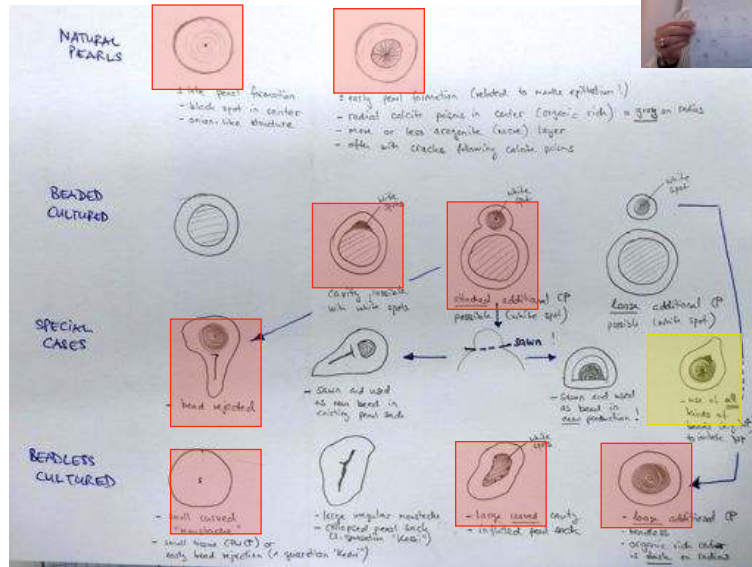 NATURAL
PEARLS
± late pearl formation
- black spot in center
- onion-like structure
± early pearl formation (related to mantle epithelium!)
- radial calcite prisms in center (organic rich) = grey on radius
- more or less aragonite (nacre) layer
- often with cracks following calcite prisms
BEADED
CULTURED
white spots
cavity possible
with white spots
white spot
attached additional CP
possible (white spot)
white spot
loose additional CP
possible (white spot)
SPECIAL
CASES
- bead rejected
- sawn and used
as new bead in
existing pearl sack
sawn!
- sawn and used
as bead in
new production!
- use of all
kinds of
beads
to imitate
BEADLESS
CULTURED
- small curved
"moustache"
- small tissue
early bead rejection "Keshi")
- large irregular moustache
- collapsed pearl sack
"Keshi")
white spots
- large curved cavity
- inflated pearl sack
- loose additional CP
- beadless
- organic rich center
is dark on radius